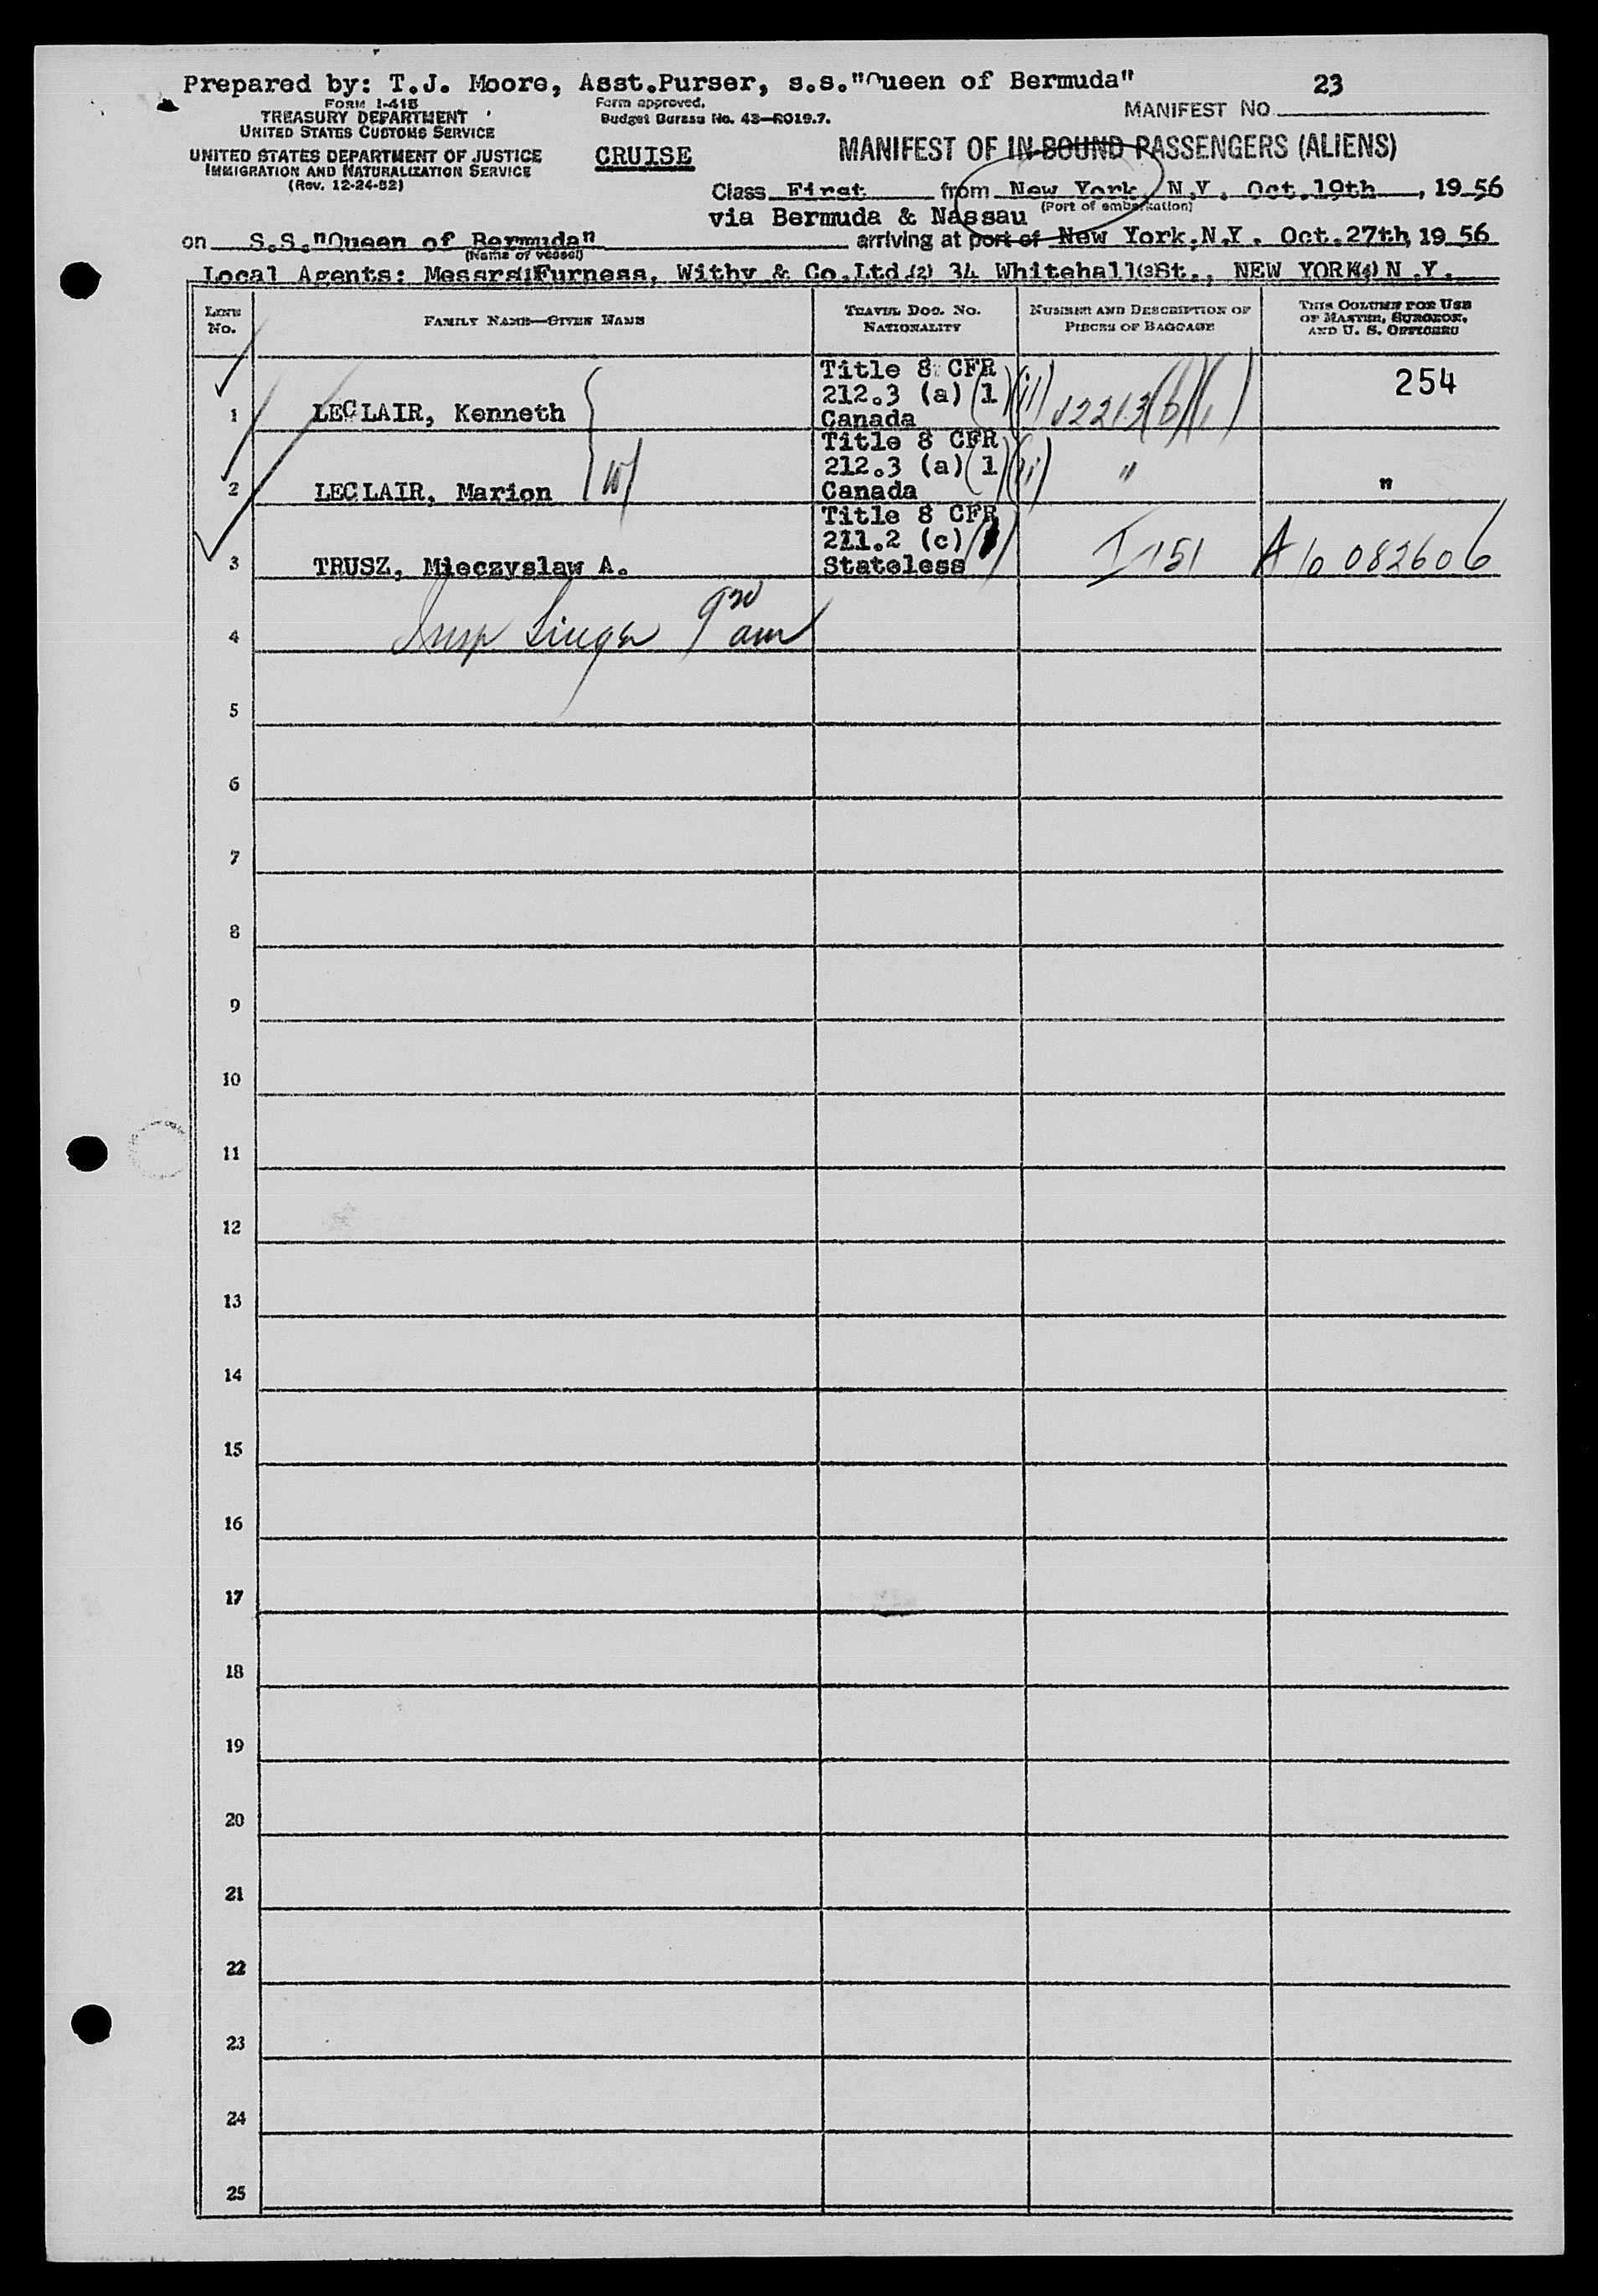 Prepared by: T.J. Moore, Asst.Purser, s.s."Queen of Bermuda"
23
FORM I-418
TREASURY DEPARTMENT
UNITED STATES CUSTOMS SERVICE
UNITED STATES DEPARTMENT OF JUSTICE
IMMIGRATION AND NATURALIZATION SERVICE
(Rev. 12-24-52)
Form approved.
Budget Bureau No. 43-R019.7.
CRUISE
MANIFEST NO.
MANIFEST OF IN-BOUND PASSENGERS (ALIENS)
Class First from New York, N.Y. Oct.19th, 1956
(Port of embarkation)
via Bermuda & Nassau
on S.S."Queen of Bermuda" arriving at port of New York,N.Y. Oct.27th, 1956
(Name of vessel)
Local Agents: Messrs. Furness, Withy & Co.Ltd. 34 Whitehall St., NEW YORK, N.Y.
(1) (2) (3) (4)
LINE No. FAMILY NAME—GIVEN NAME TRAVEL DOC. NO. NATIONALITY NUMBER AND DESCRIPTION OF PIECES OF BAGGAGE THIS COLUMN FOR USE OF MASTER, SURGEON, AND U. S. OFFICERS
Title 8 CFR
212.3 (a) (1) (ii) 254
1 LECLAIR, Kenneth Canada
Title 8 CFR
212.3 (a) (1) (ii) " "
2 LECLAIR, Marion W Canada
Title 8 CFR
211.2 (c)
3 TRUSZ, Mieczyslaw A. Stateless I 151 A 10 082606
4 Insp Singer 9 30 am
5
6
7
8
9
10
11
12
13
14
15
16
17
18
19
20
21
22
23
24
25